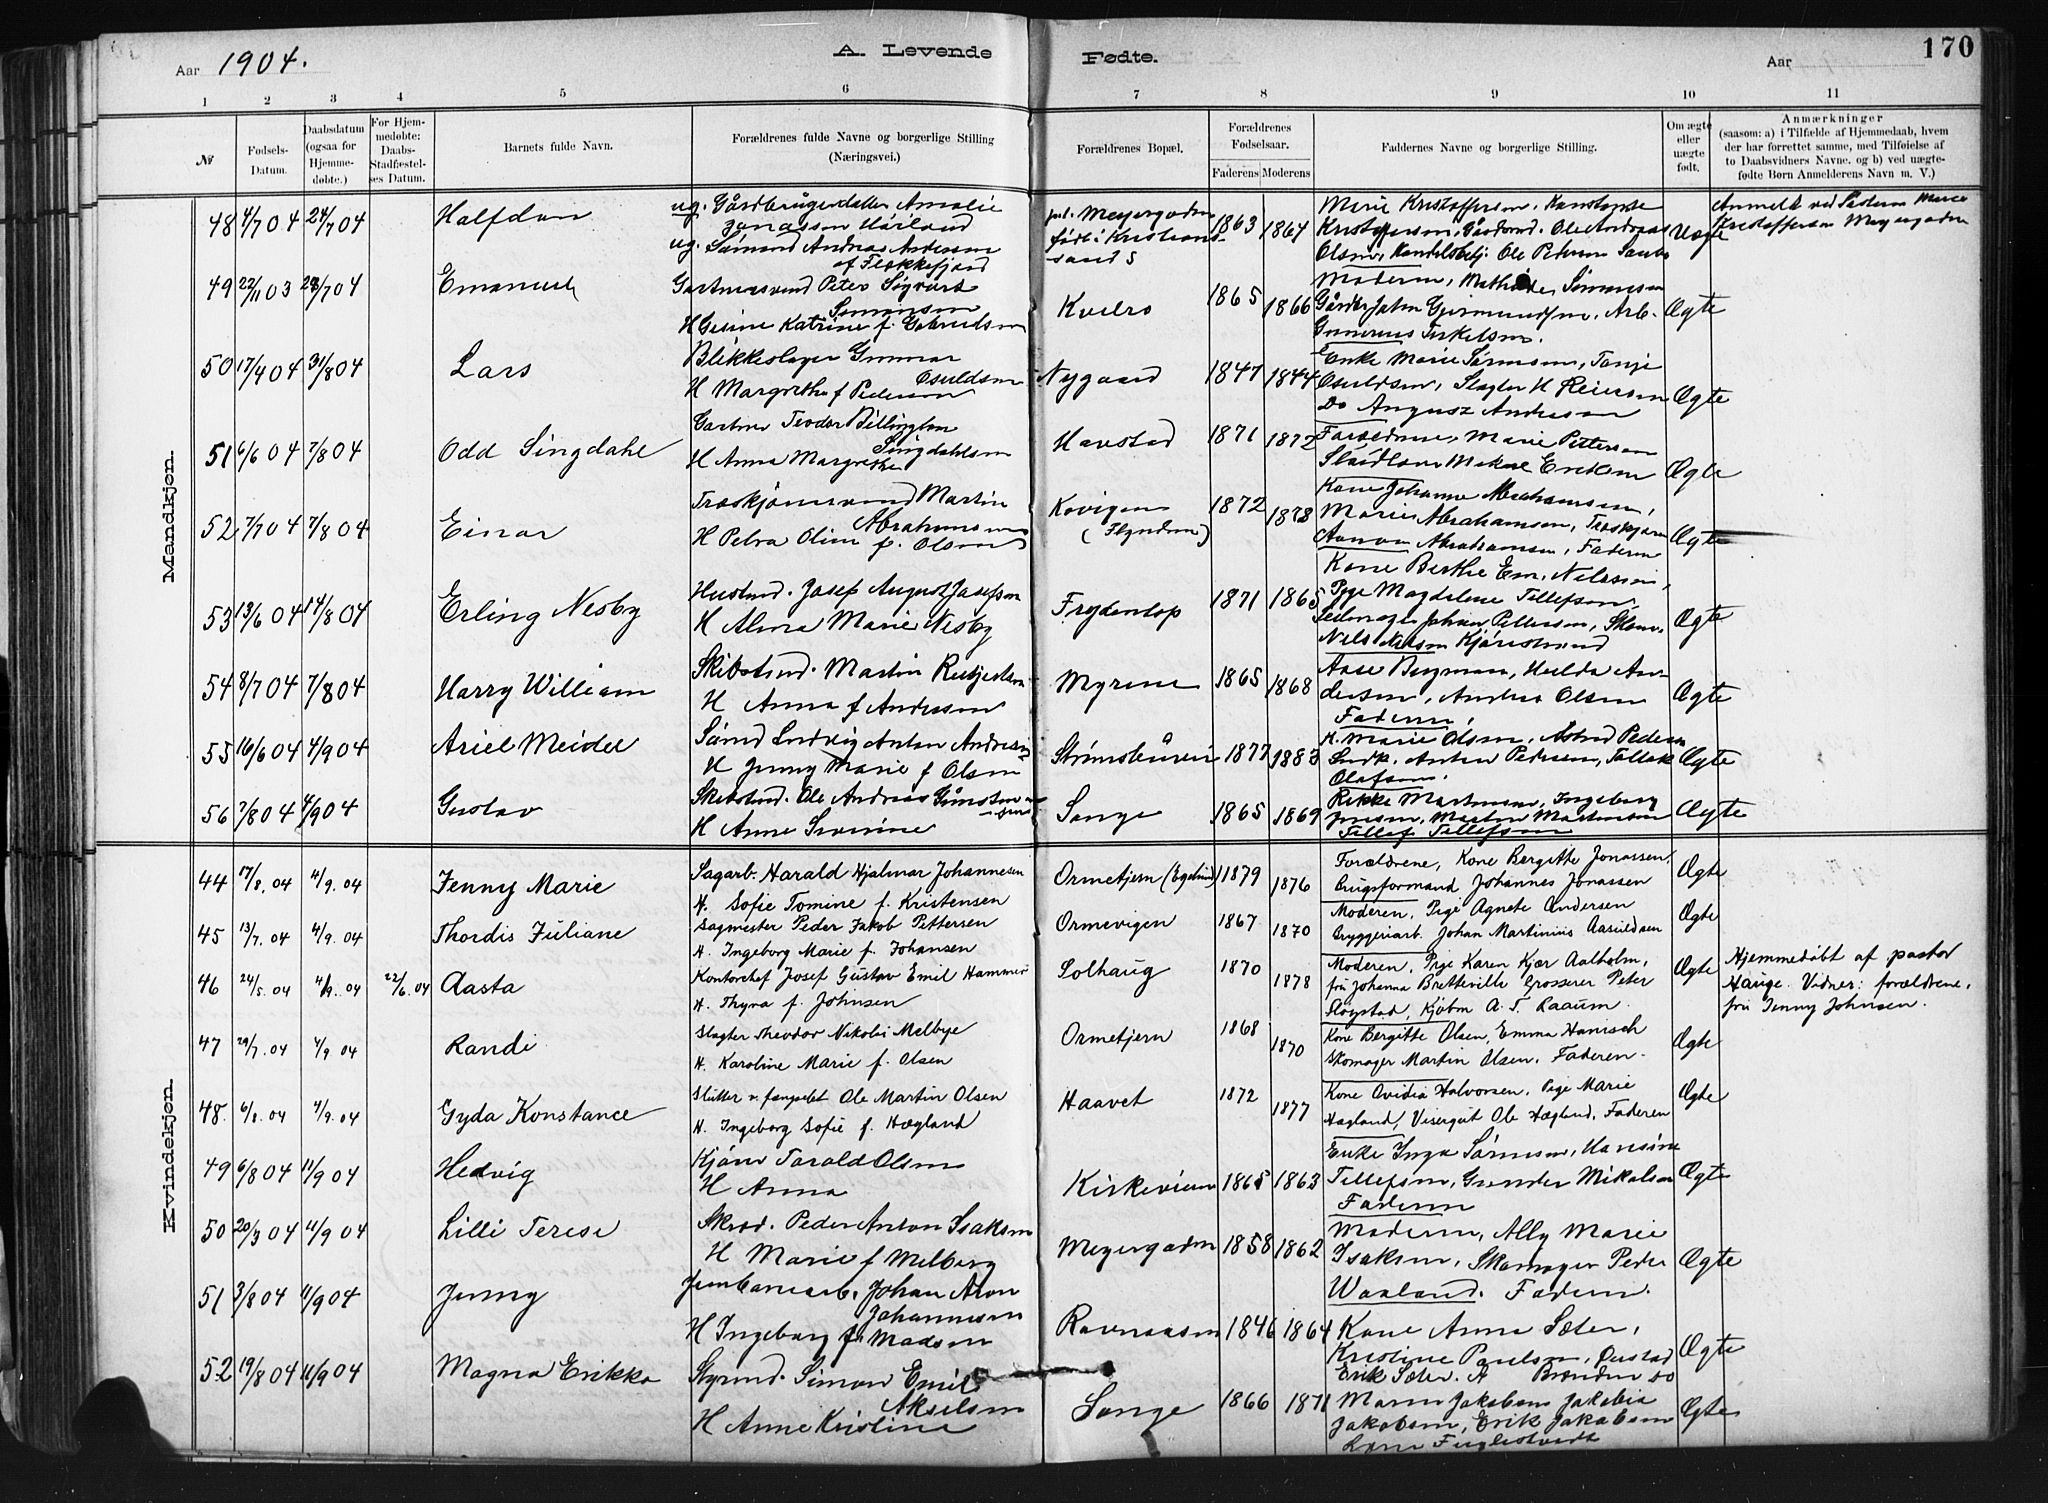 Aar 1904.
A. Levende Fødte.
Aar
170
1 2 3 4 5 6 7 8 9 10 11
№
Fødsels-Datum.
Daabsdatum (ogsaa for Hjemme-døbte.)
For Hjem-medøbte: Daabs-Stadfæstel-ses Datum.
Barnets fulde Navn.
Forældrenes fulde Navne og borgerlige Stilling (Næringsvei.)
Forældrenes Bopæl.
Forældrenes Fødselsaar.
Faderens Moderens
Faddernes Navne og borgerlige Stilling.
Om ægte eller uægte født.
Anmærkninger
(saasom: a) i Tilfælde af Hjemmedaab, hvem der har forrettet samme, med Tilføielse af to Daabsvidners Navne. og b) ved uægte-fødte Børn Anmelderens Navn m. V.)
Mandkjøn.
48 4/7 04 24/7 04 Halfdan
ug. Gårdbrugerdatter Amalie
Jonassen Hårland
ug. Sømand Andreas Andersen
af Flekkefjord
Meyergaden
født i Kristians-
sand S
1863 1864
Marie Kristoffersen,
Kristoffersen, Ole Andreas
Olsen, Ole Pedersen
Uægte
Anmeldt ved Marie
Kristoffersen Meyergaden
49 22/11 03 28/7 04 Emanuel
Gartnersvend Peter Sigvart
Simonsen
H Gesine Katrine f. Gabrielsen
1865 1866
Moderen, Mathilde Simonsen
Ægte
50 17/4 04 31/8 04 Lars
Blikkeslager Gunnar
Osuldsen
H Margrethe f Pedersen
Nygaard
1847 1844
Enke Marie Sørensen,
Osuldsen, Slagter H Reiersen
Do August Andersen
Ægte
51 6/6 04 7/8 04 Odd Singdahl
Gartner Teodor Billington
Singdahlsen
H Anna Margrethe
Havstad
1871 1872
Marie Pettersen
Eriksen
Ægte
52 7/7 04 7/8 04 Einar
Træskjærersvend Martin
Abrahamsen
H Petra Oline f. Olsen
Kovigen
1872 1878
Kone Johanne Abrahamsen,
Marie Abrahamsen,
Abrahamsen, Faderen
Ægte
53 13/6 04 14/8 04 Erling Nesby
Josef August Josefsen
H Alma Marie Nesby
Frydentop
1871 1865
Kone Berthe Em. Nilssen,
Pige Magdelene Tellefsen,
Johan Pettersen,
Nils Nilsen Kjørestrand
Ægte
54 8/7 04 7/8 04 Harry William
Martin
H Anna f Andersen
Myrene
1865 1868
Aase Bergman, Hulda An-
dersen, Andreas Olsen
Faderen,
Ægte
55 16/6 04 4/9 04 Ariel Meidel
Sømd Ludvig Anton Andresen
H Jenny Marie f Olsen
Strømsbuveien
1877 1883
K. Marie Olsen, Astrid Pedersen
Anton Pedersen, Tellak
Olafsen.
Ægte
56 7/8 04 4/9 04 Gustav
Ole Andreas
H Anne Severine
Songe
1865 1869
Rikke Martinsen, Ingeborg
Jensen, Martin Martinsen
Tellef Tellefsen
Ægte
Kvindekjøn.
44 17/8. 04 4/9. 04 Jenny Marie
Sagarb. Harald Hjalmar Johannesen
H. Sofie Tomine f. Kristensen
Ormetjern
1879 1876
Forældrene, Kone Bergitte Jonassen,
Brugsformand Johannes Jonassen
Ægte
45 13/7. 04 4/9. 04 Thordis Juliane
Sagmester Peder Jakob Pettersen
H. Ingeborg Marie f. Johansen
Ormevigen
1867 1870
Moderen, Pige Agnete Andersen
Bryggeriarb. Johan Martinius Aasvildsen
Ægte
46 24/5. 04 4/9. 04 22/6. 04 Aasta
Kontorchef Josef Gustav Emil Hammer
H. Thyra f. Johnsen
Solhaug
1870 1878
Moderen, Pige Karen Kjær Aalholm,
fru Johanna Bretteville Grosserer Peter
Fløystad, Kjøbm A. T. Raaum.
Ægte
Hjemmedøbt af pastor
Hauge. Vidner: forældrene,
fru Jenny Johnsen.
47 29/7. 04 4/9 04 Randi
Slagter Theodor Nikolai Melbye
H. Karoline Marie f. Olsen
Ormetjern
1868 1870
Kone Bergitte Olsen, Emma Hanisch
Skomager Martin Olsen. Faderen.
Ægte
48. 6/8. 04 4/9. 04 Gyda Konstance
Slutter v. fængselet Ole Martin Olsen
H. Ingeborg Sofie f. Hægland
Haavet
1872 1877
Kone Ovidia Halvorsen, Pige Marie
Hægland, Visergut Ole Hægland, Faderen
Ægte
49 6/8 04 11/9 04 Hedvig
Tarald Olsen
H Anna
Kirkeveien
1865 1863
Enke Inga Sørensen, Hansine
Tellefsen, Gunder Mikalsen
Faderen
Ægte
50 20/3 04 11/9 04 Lilli Terese
Peder Anton Isaksen
H Marie f Melberg
Meyergaden
1858 1862
Moderen, Ally Marie
Isaksen, Skomager Peder
Waaland. Faderen.
Ægte
51 3/8 04 11/9 04 Jenny
Jernbanearb. Johan Aron
Johannessen
H Ingeborg f. Madsen
Ravnaasen
1846 1864
Kone Anna Sæter,
Kristine Paulsen,
Erik Sæter.
Ægte
52 19/8 04 11/9 04 Magna Erikka
Styrmd. Simon Emil
Akselsen
H Anne Kristine
Songe
1866 1871
Maren Jakobsen Jakobia
Jakobsen, Erik Jakobsen
Fuglestvedt
Ægte